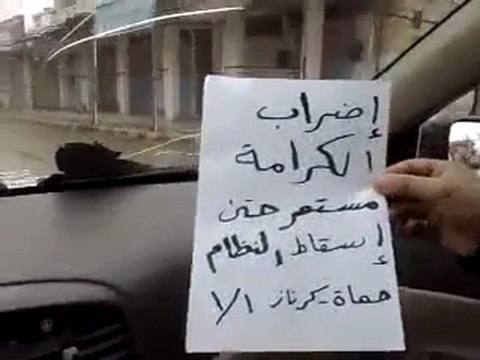 إضراب
الكرامة
مستمر حتى
إسقاط النظام
حماة - كرناز ١/١